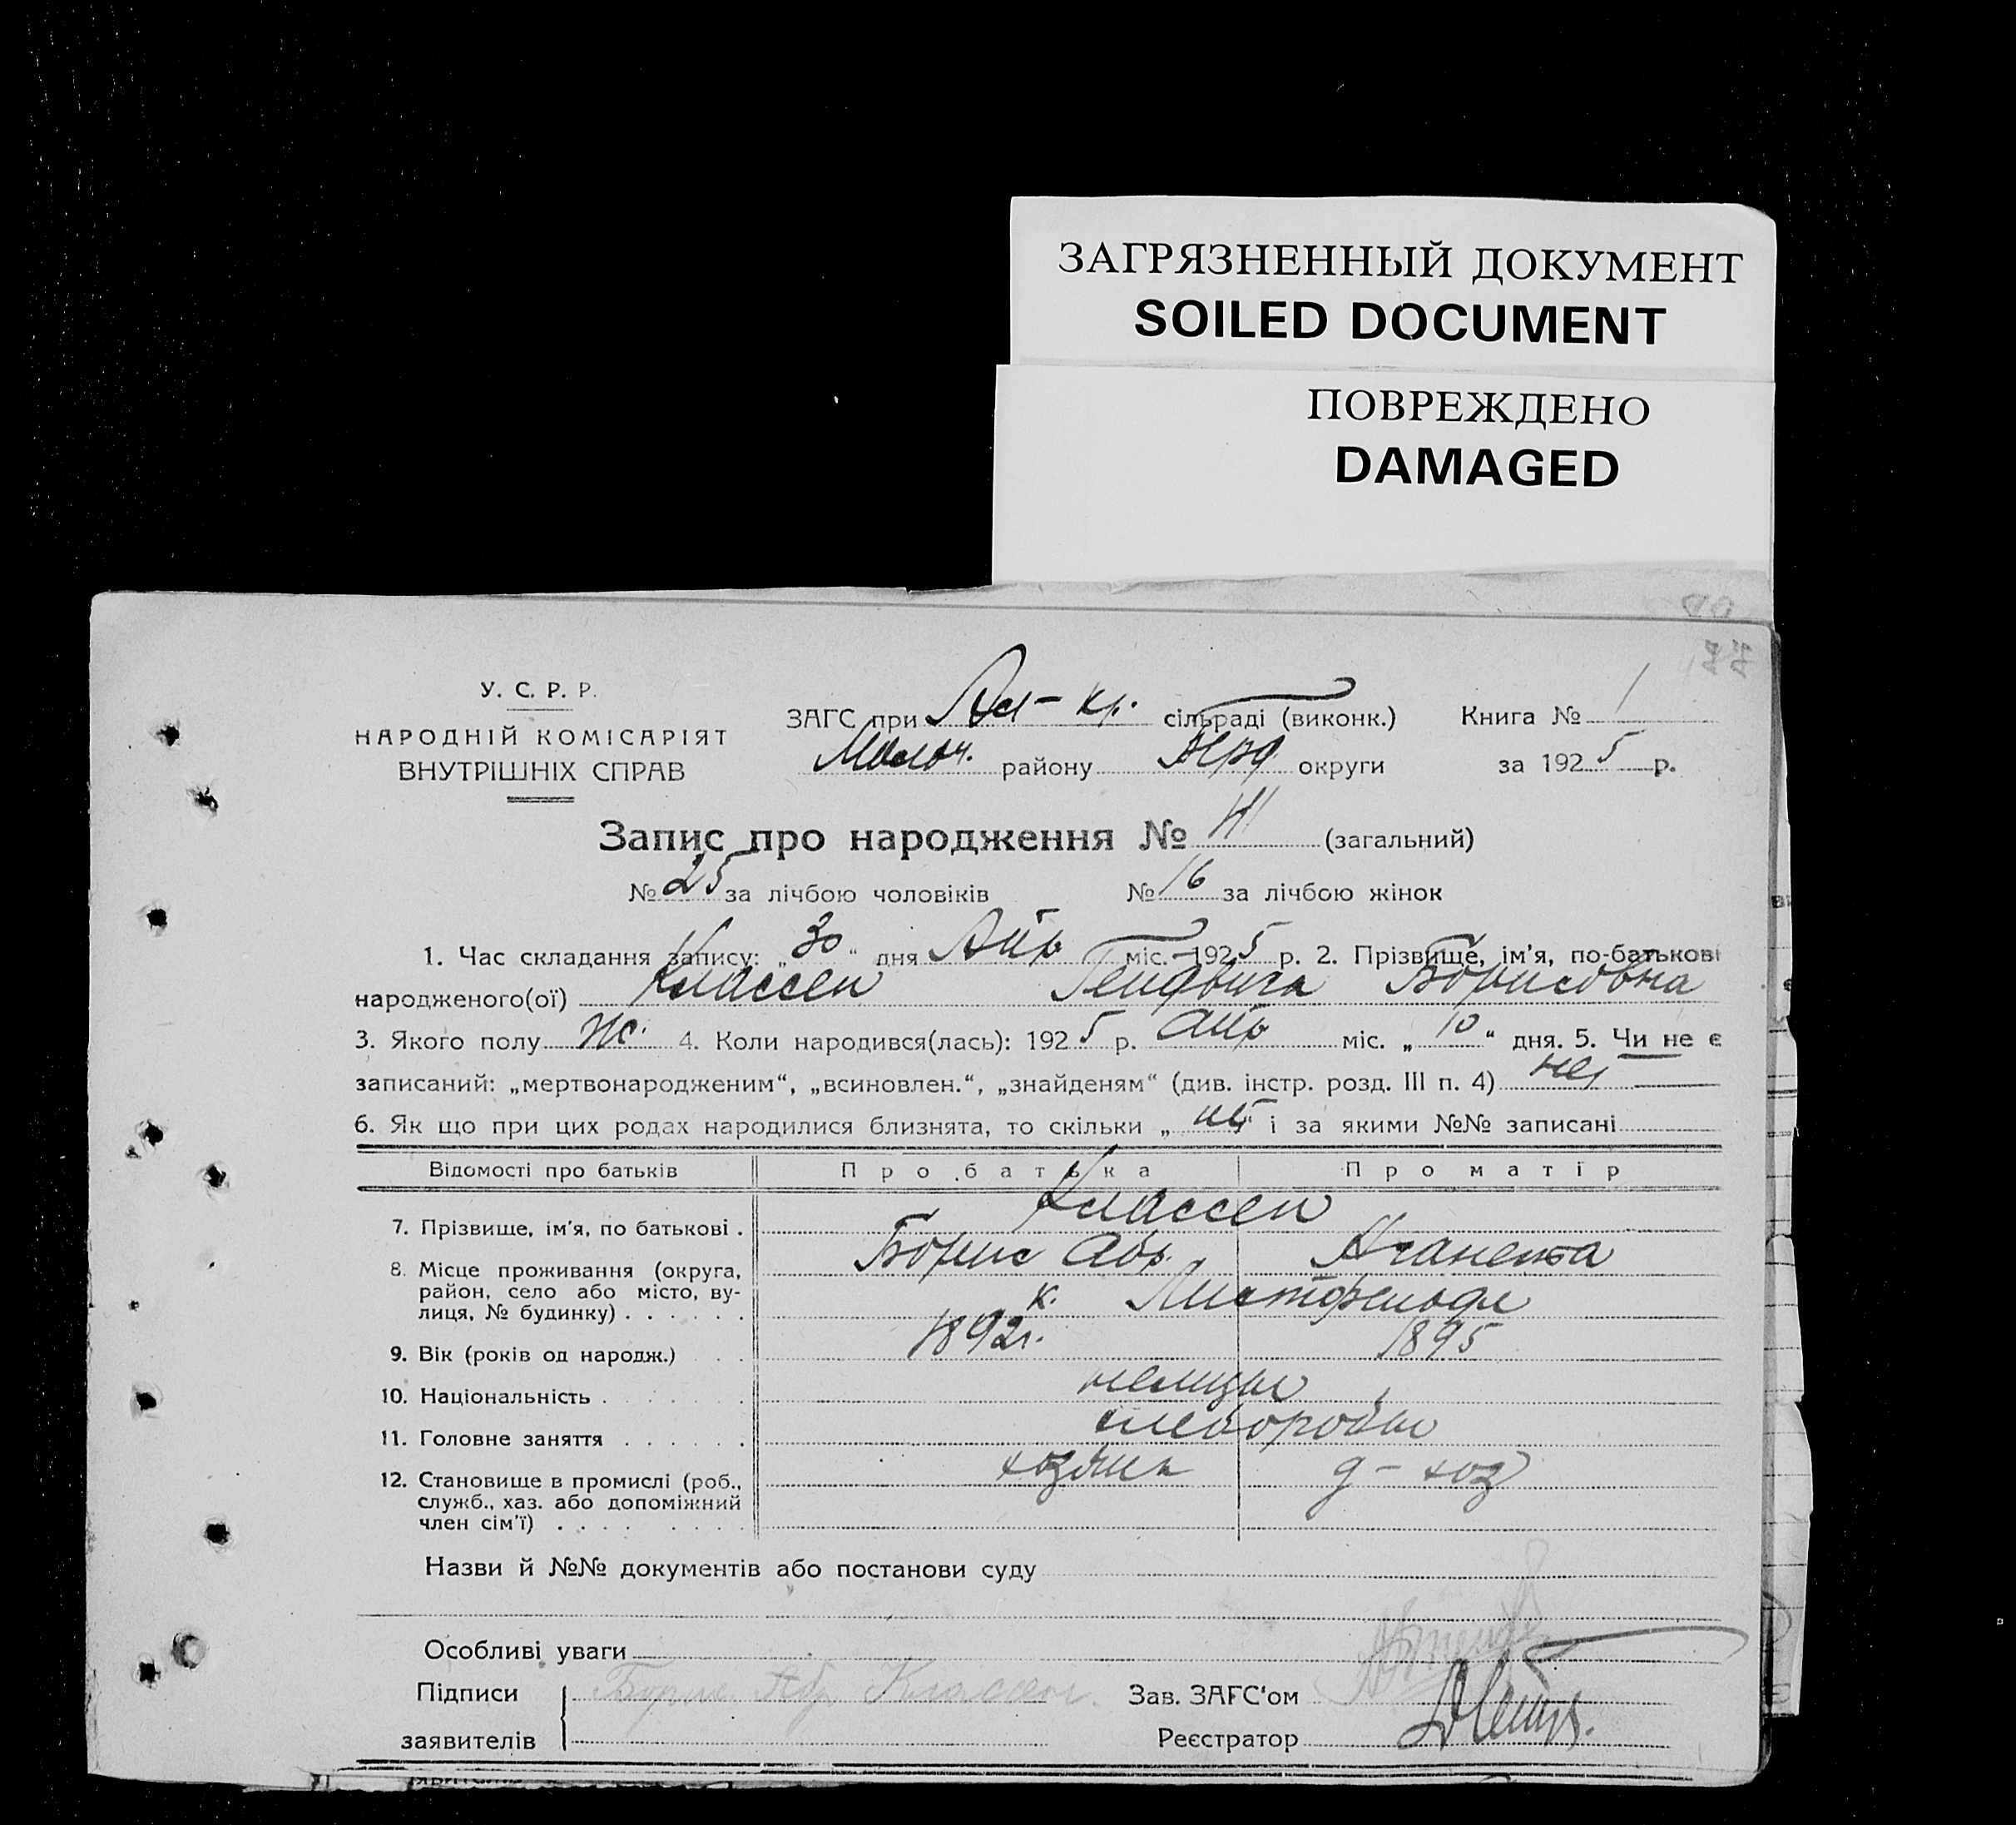 ЗАГРЯЗНЕННЫЙ ДОКУМЕНТ
SOILED DOCUMENT
ПОВРЕЖДЕНО
DAMAGED
77
У. С. Р. Р.
НАРОДНІЙ КОМІСАРІЯТ
ВНУТРІШНІХ СПРАВ
ЗАГС при сільраді (виконк.) Книга № 1
Молоч. району округи за 1925 р.
Запис про народження № 41 (загальний)
№ 25 за лічбою чоловіків № 16 за лічбою жінок
1. Час складання запису: „30“ дня Апр міс. 1925 р. 2. Прізвище, ім'я, по-батькові
народженого(ої) Классен Гендвига Борисовна
3. Якого полу ж. 4. Коли народився(лась): 1925 р. апр міс. „10“ дня. 5. Чи не є
записаний: „мертвонародженим“, „всиновлен.“, „знайденям“ (див. інстр. розд. III п. 4) нет
6. Як що при цих родах народилися близнята, то скільки „нет“ і за якими №№ записані
Відомості про батьків Про батька Про матір
Классен
7. Прізвище, ім'я, по батькові . Борис Абр. Аганета
8. Місце проживання (округа, район, село або місто, вулиця, № будинку) . . . . . . к.
9. Вік (років од народж.) . . 1892г. 1895
10. Національність . . . . . . немцы
11. Головне заняття . . . . . . хлеборобы
12. Становище в промислі (роб., служб., хаз. або допоміжний член сім'ї) . . . . . . . . хозяин д-хоз
Назви й №№ документів або постанови суду
Особливі уваги
Підписи Борис Абр Классен. Зав. ЗАГС'ом
заявителів Реєстратор